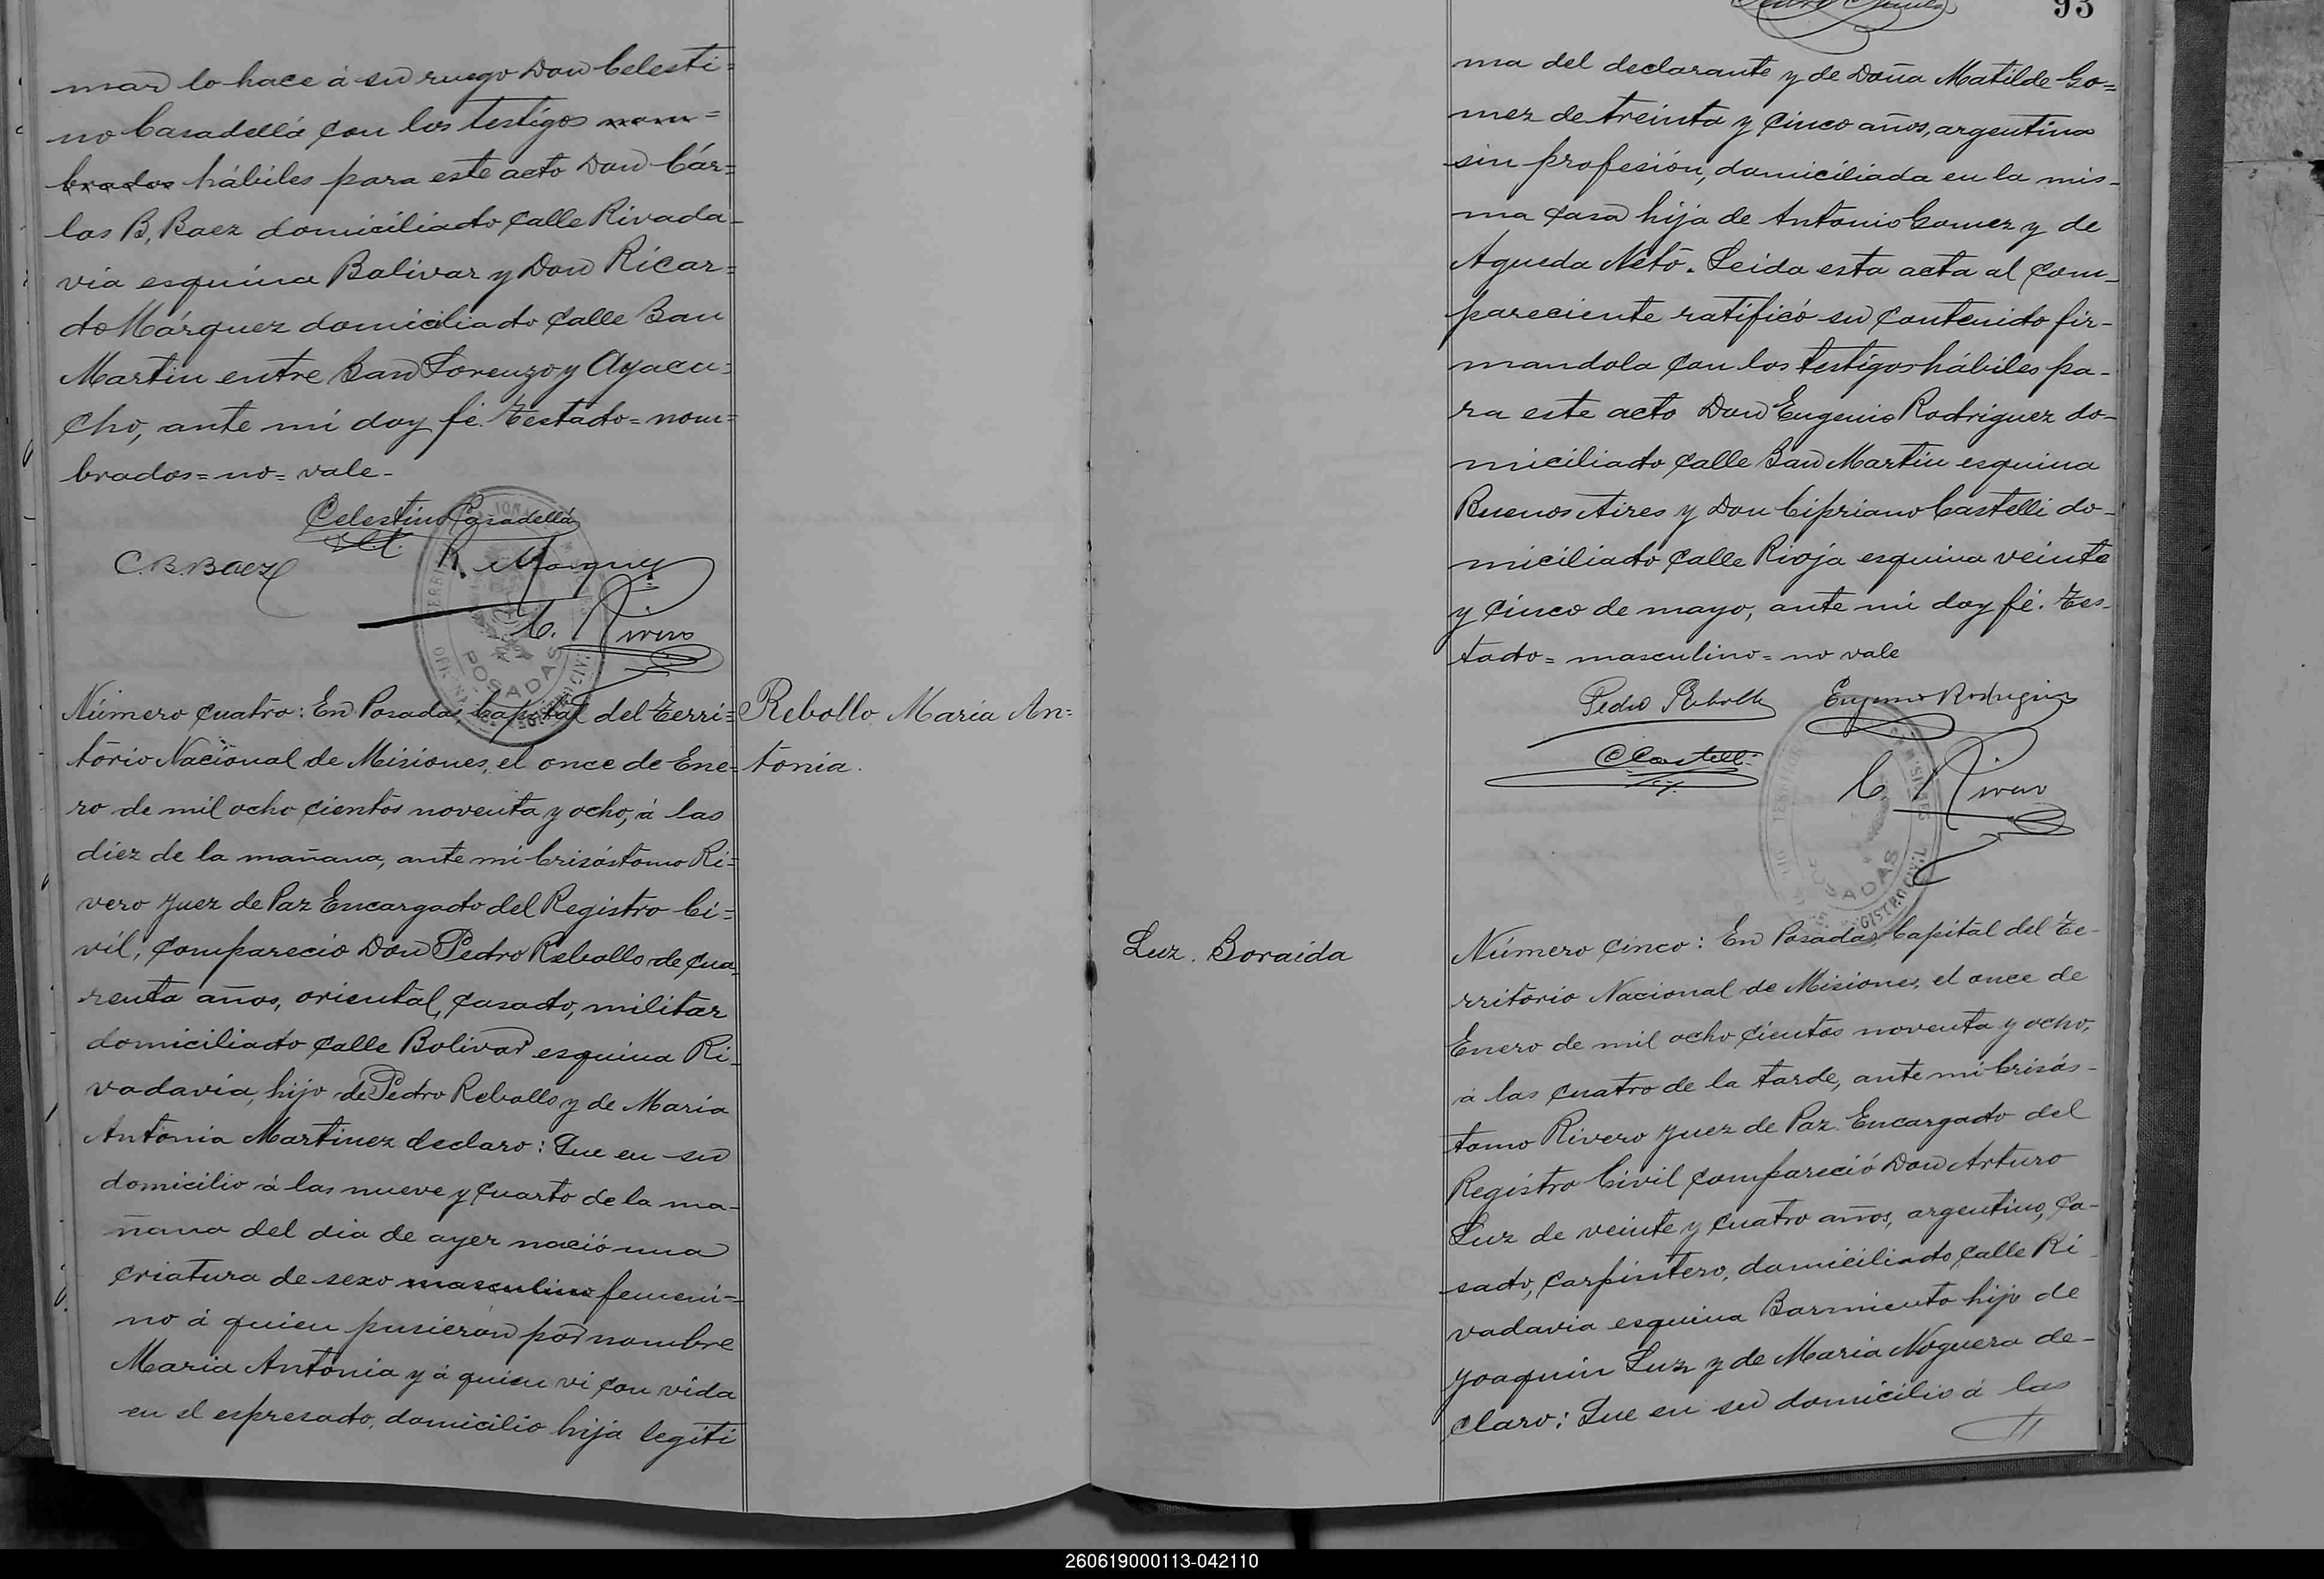 mar lo hace á su ruego Don Celesti=
no Casadellá con los testigos nom=
brados hábiles para este acto Don Cár=
los B. Baez domiciliado calle Rivada-
via esquina Bolivar y Don Ricar=
do Márquez domiciliado calle San
Martin entre San Lorenzo y Ayacu=
cho, ante mí doy fé. Testado=nom=
brados=no=vale-
Celestino Casadellá
C.B. Baez
R. Marquez
C. Rivero
POSADAS
Número cuatro: En Posadas, Capital del Terri=
torio Nacional de Misiones, el once de Ene=
ro de mil ocho cientos noventa y ocho, á las
diez de la mañana, ante mí Crisóstomo Ri=
vero Juez de Paz Encargado del Registro Ci=
vil; compareció Don Pedro Rebollo de cua-
renta años, oriental, casado, militar
domiciliado calle Bolivar esquina Ri-
vadavia, hijo de Pedro Rebollo y de María
Antonia Martinez declaro: Que en su
domicilio á las nueve y cuarto de la ma-
ñana del dia de ayer nació una
criatura de sexo masculino femeni=
no á quien pusieron por nombre
Maria Antonia y á quien vi con vida
en el espresado domicilio hija legiti
Rebollo María An=
tonia.
93
ma del declarante y de Doña Matilde Go=
mez de treinta y cinco años, argentina
sin profesión, domiciliada en la mis-
ma casa hija de Antonio Gomez y de
Agueda Neto. Leida esta acta al com-
pareciente ratificó su contenido fir-
mandola con los testigos hábiles pa-
ra este acto Don Eugenio Rodriguez do-
miciliado calle San Martin esquina
Buenos Aires y Don Cipriano Castelli do-
miciliado calle Rioja esquina veinte
y cinco de mayo, ante mi doy fé. Tes-
tado= masculino= no vale
Pedro Rebollo
Eugenio Rodriguez
C Castelli
C. Rivero
Luz. Soraida
Número cinco: En Posadas Capital del Te-
rritorio Nacional de Misiones, el once de
Enero de mil ocho cientos noventa y ocho,
á las cuatro de la tarde, ante mi Crisós-
tomo Rivero Juez de Paz Encargado del
Registro Civil compareció Don Arturo
Luz de veinte y cuatro años, argentino, ca-
sado, carpintero, domiciliado calle Ri
vadavia esquina Sarmiento hijo de
Joaquin Luz y de Maria Noguera de-
claro: Que en su domicilio á las
260619000113-042110